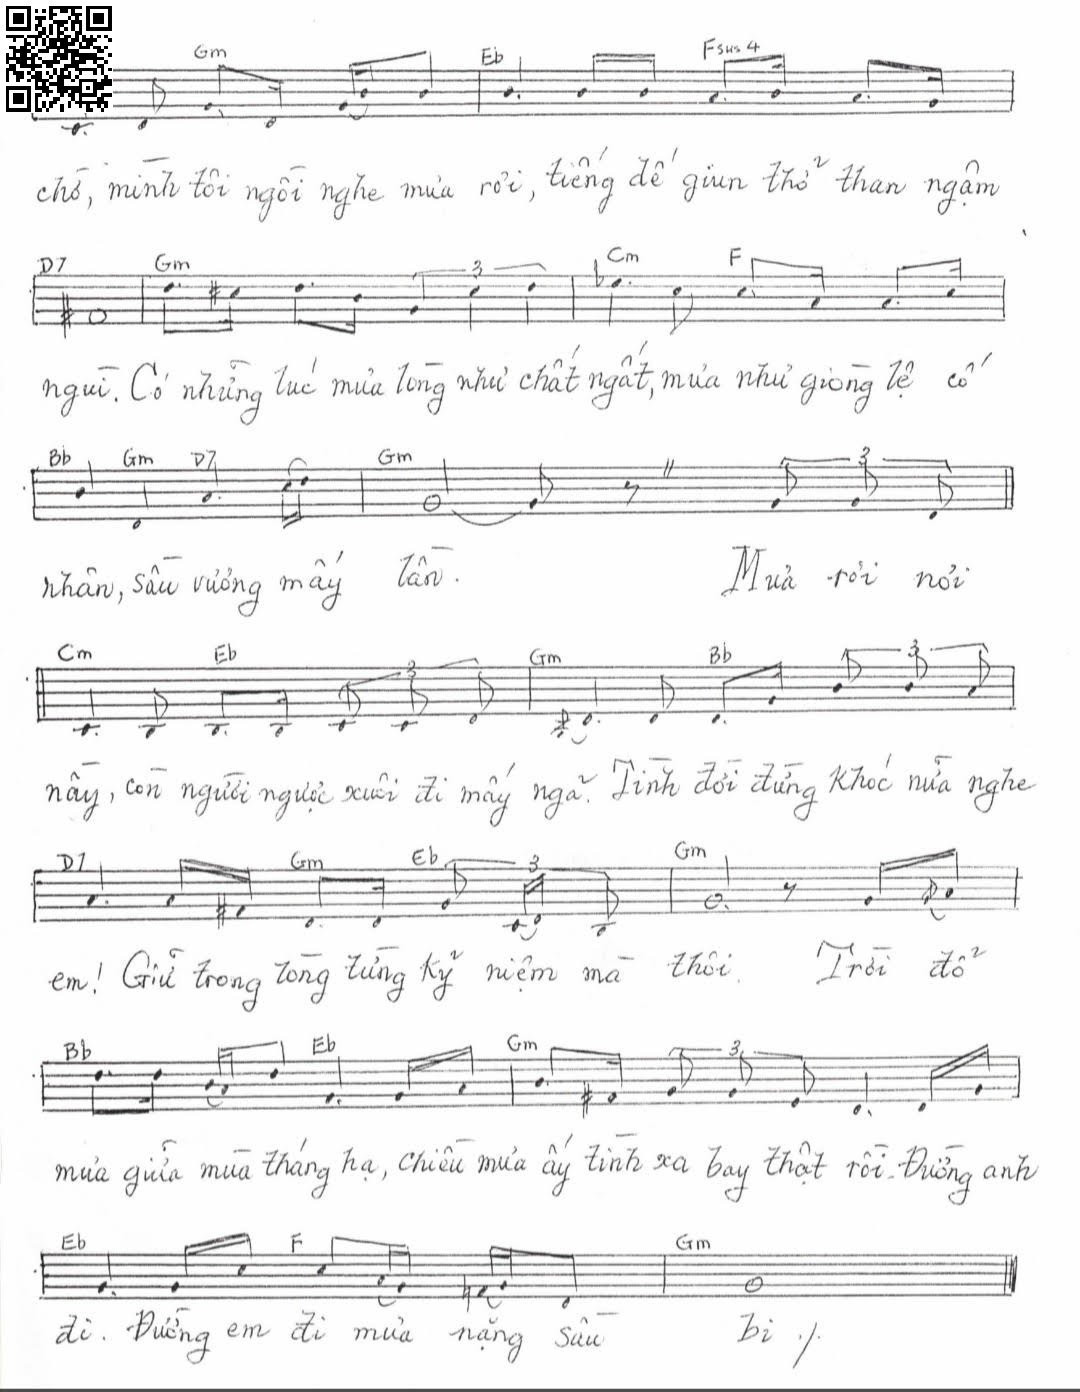 Gm Eb Fsus4
chở, mình tôi ngồi nghe mưa rơi, tiếng dế giun thở than ngậm
D7 Gm 3 Cm F
ngùi. Có những lúc mưa lòng như chất ngất, mưa như giòng lệ cố
Bb Gm D7 Gm 3
nhân, sầu vương mấy lần. Mưa rơi nơi
Cm Eb 3 Gm Bb 3
nầy, còn người ngược xuôi đi mấy ngã. Tình đời đừng khóc nữa nghe
D7 Gm Eb 3 Gm
em! Giữ trong lòng từng kỹ niệm mà thôi. Trời đổ
Bb Eb Gm 3
mưa giữa mùa tháng hạ, chiều mưa ấy tình xa bay thật rồi. Đường anh
Eb F Gm
đi. Đường em đi mưa nặng sầu bi ./.